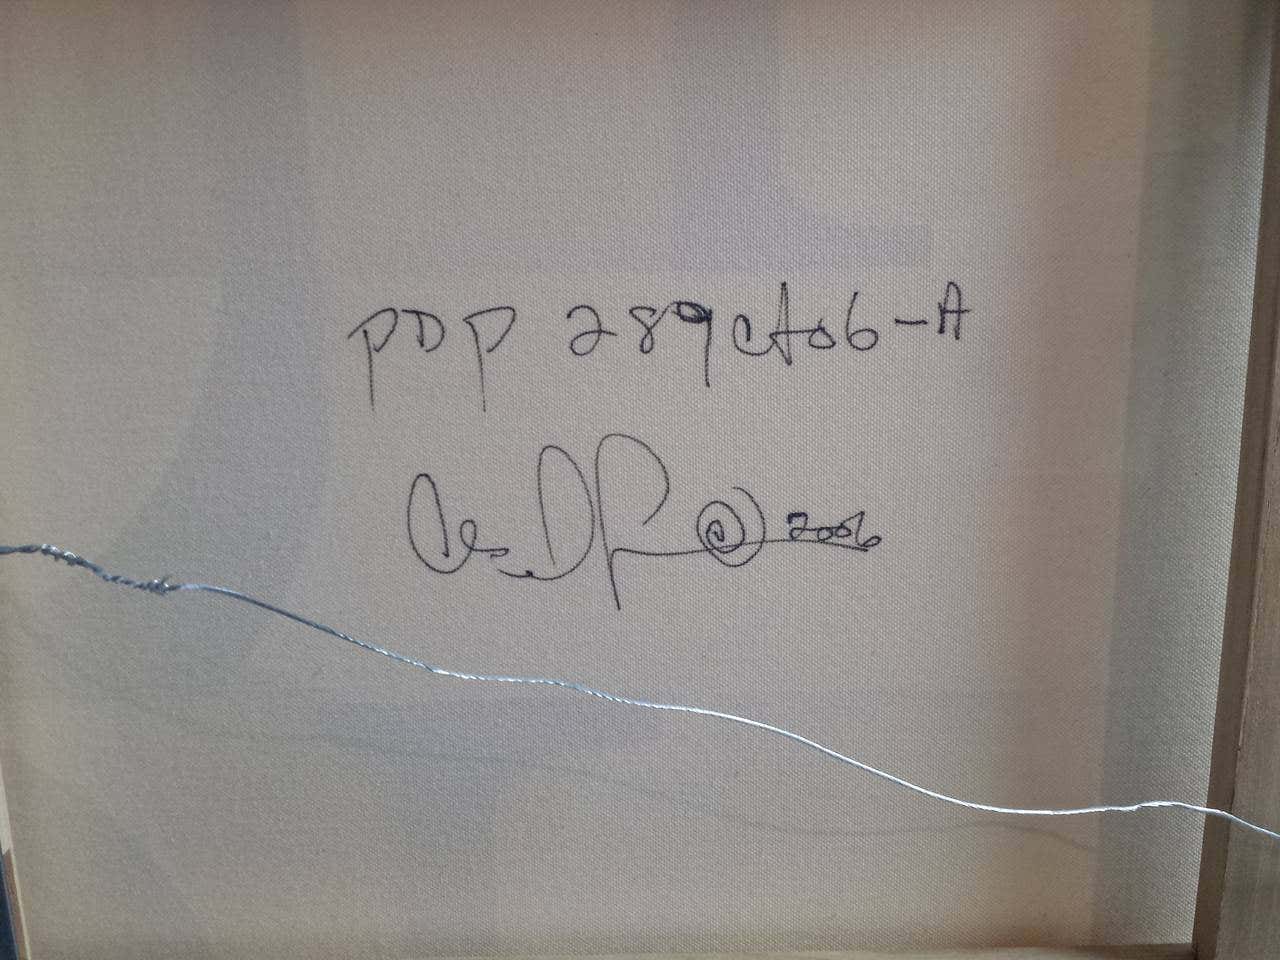 PDP 289ct06-A
© 2006